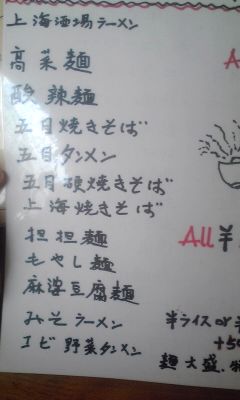 上海酒場ラーメン
高菜麺
酸辣麺
五目焼きそば
五目タンメン
五目硬焼きそば
上海焼きそば
担担麺 All ¥
もやし麺
麻婆豆腐麺
みそラーメン 半ライス or
エビ野菜タンメン +5
麺大盛.